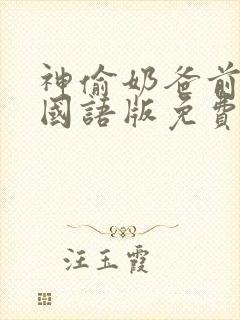 神偷奶爸前
國語版免費
汪玉霞